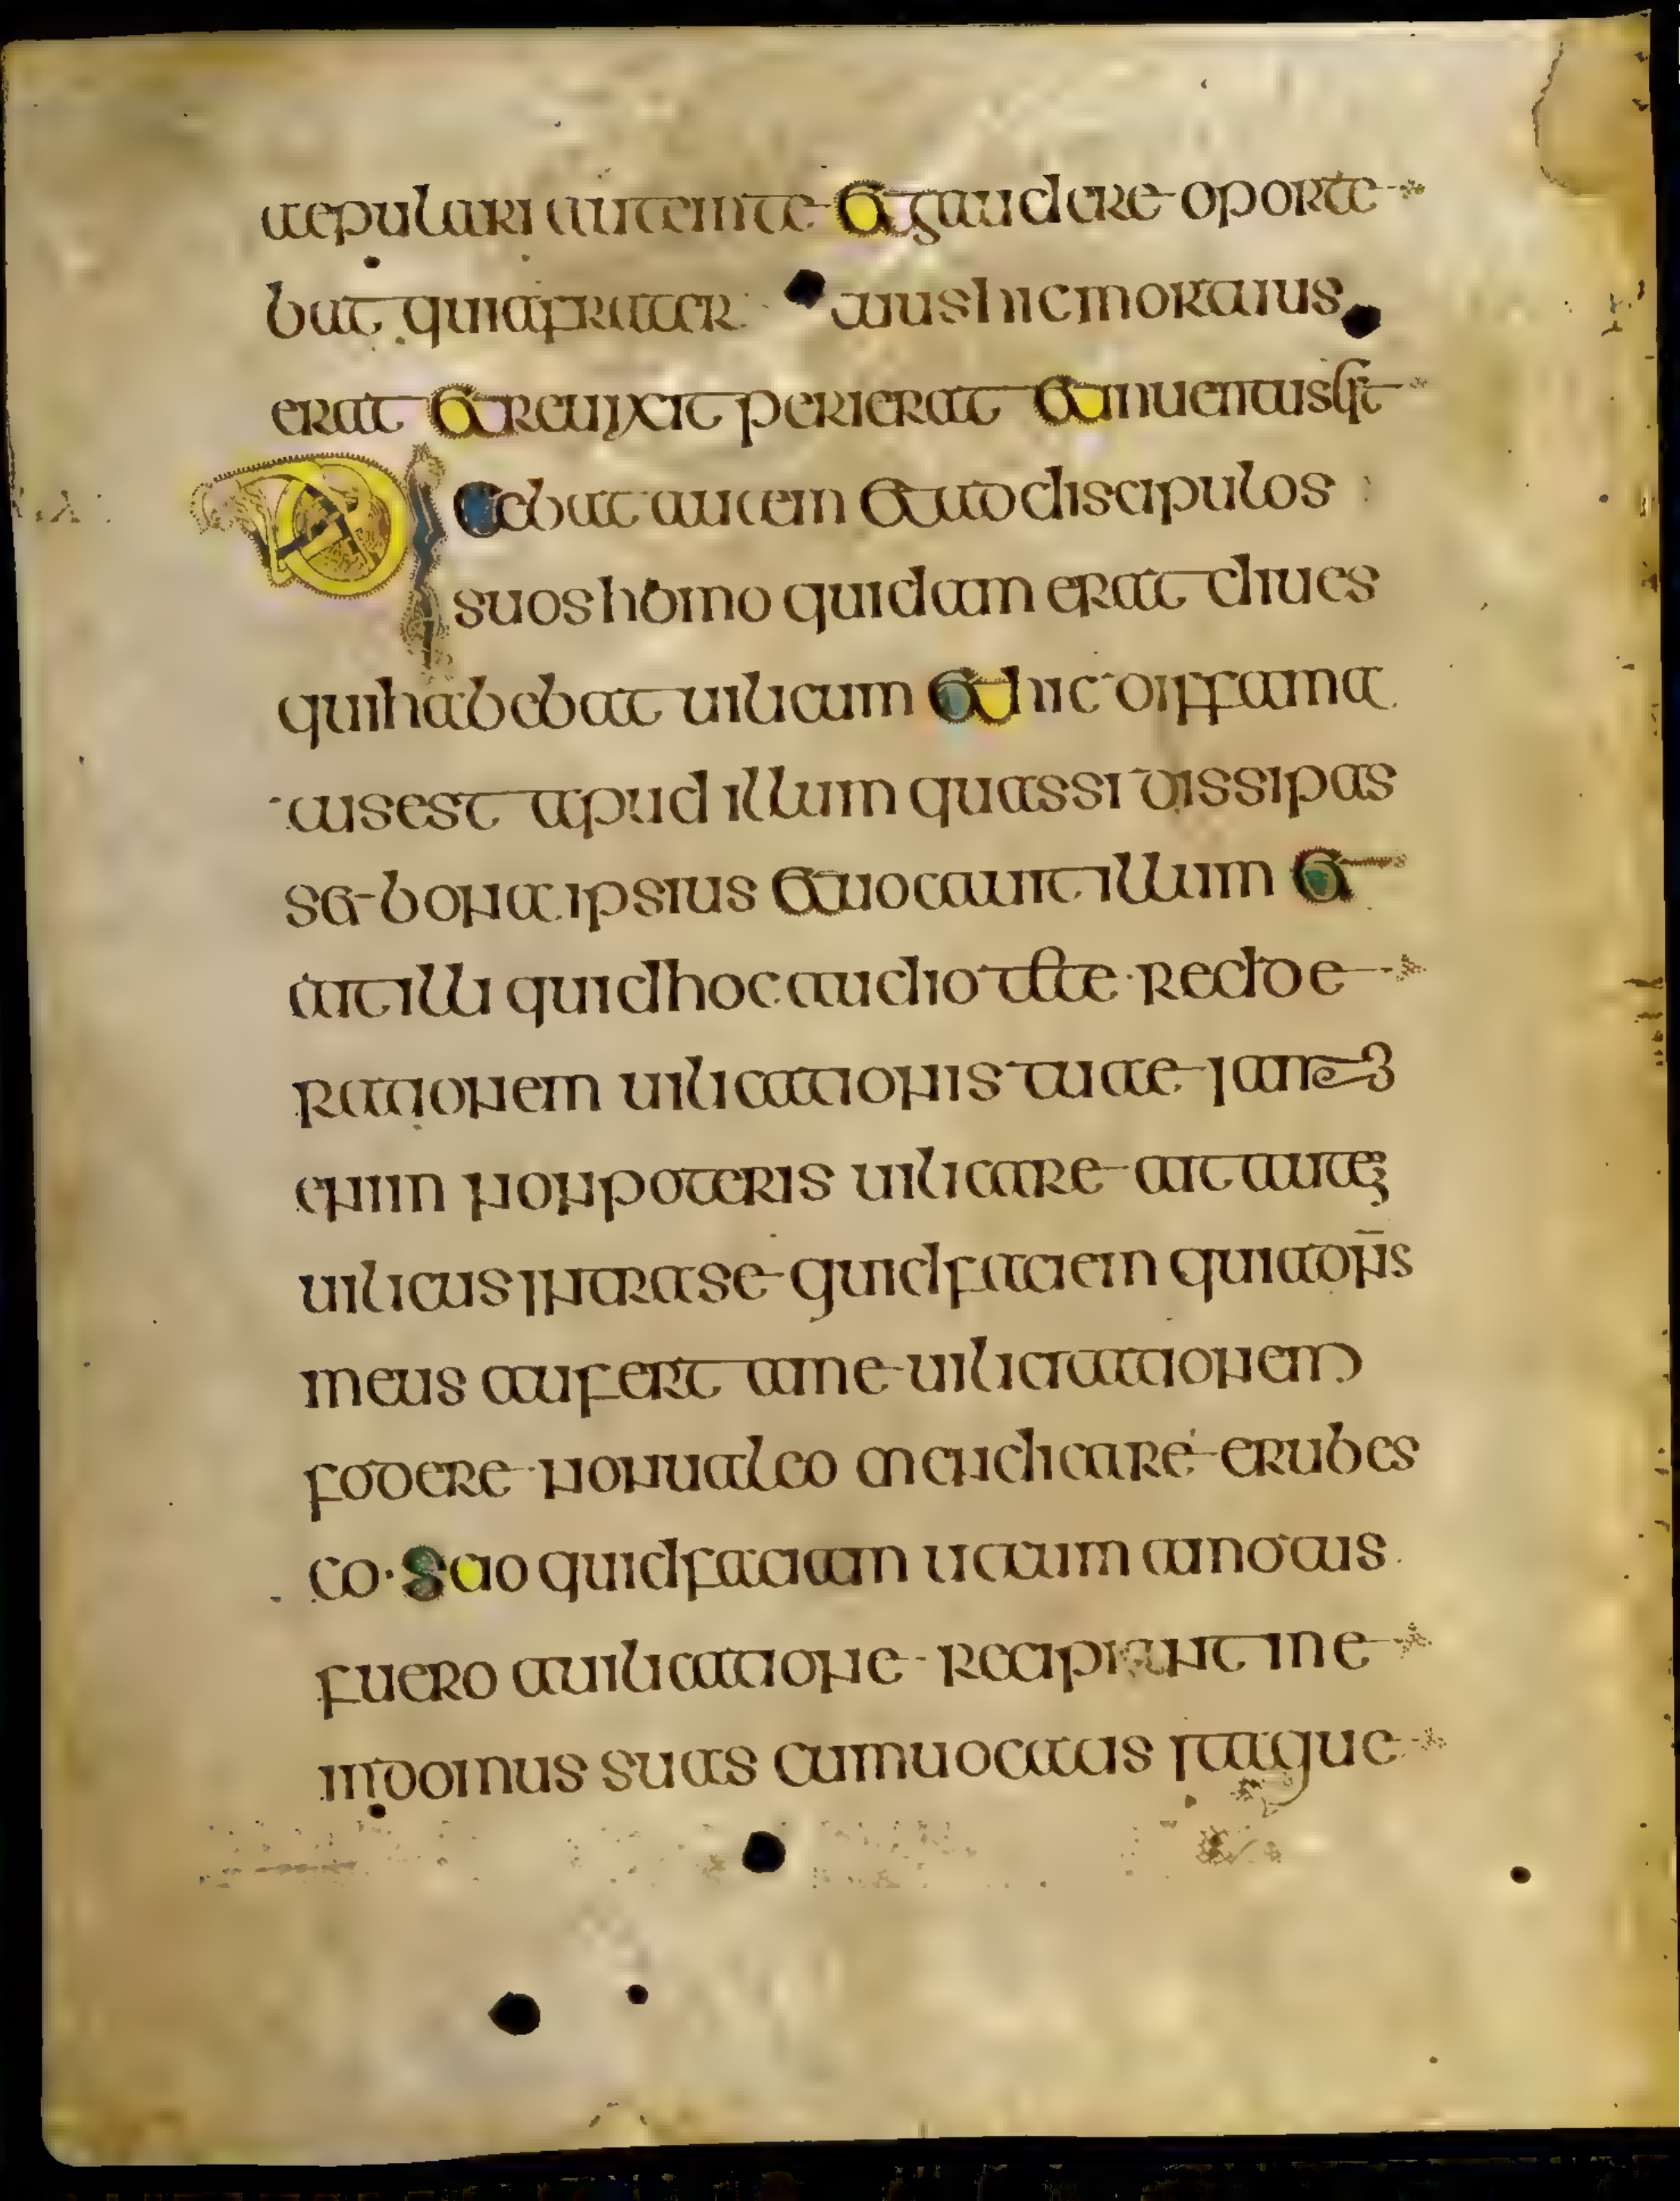 aepulari autem te et gaudere oporte
bat quia frater tuus hic mortuus
erat et reuixit perierat et inuentus est
Dicebat autem et ad discipulos
suos homo quidam erat diues
qui habebat uilicum et hic diffama
tus est apud illum quassi dissipas
set bona ipsius et uocauit illum et
ait illi quid hoc audio de te redde
rationem uilicationis tuae iam
enim non poteris uilicare ait autem
uilicus intra se quid faciem quia dns̄
meus aufert a me uilicationem
fodere non ualeo mendicare erubes
co scio quid faciam ut cum amotus
fuero a uilicatione recipiant me
in domus suas conuocatis itaque